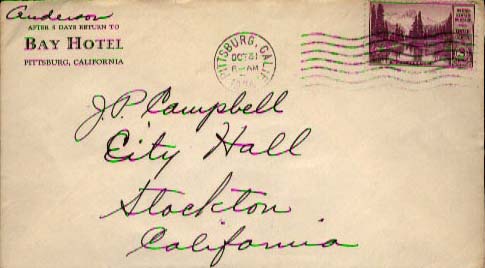 Anderson
AFTER 5 DAYS RETURN TO
BAY HOTEL
PITTSBURG, CALIFORNIA
PITTSBURG, CALIF.
OCT 31
AM
J.P. Campbell
City Hall
Stockton
California